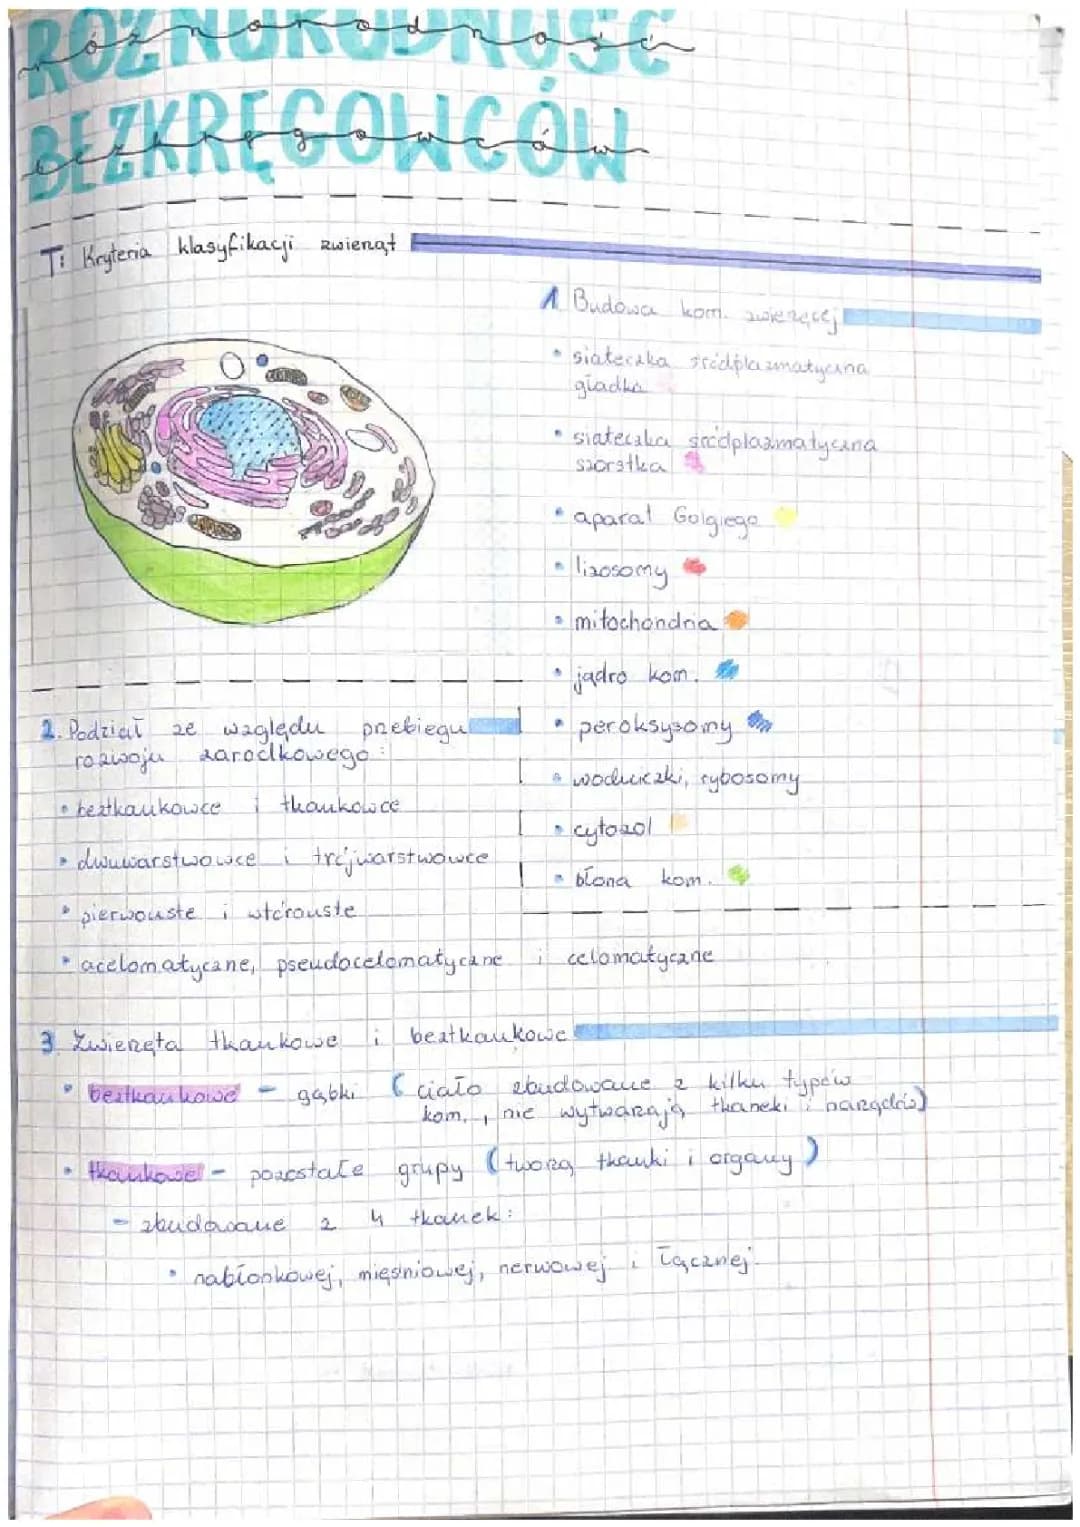 RÓŻNORODNOŚĆ
różnorodność
BEZKRĘGOWCÓW
bezkręgowców
T: Kryteria klasyfikacji zwierząt
1. Budowa kom. zwierzęcej
• siateczka śródplazmatyczna
gładka
• siateczka śródplazmatyczna
szorstka
• aparat Golgiego
• lizosomy
• mitochondria
• jądro kom.
• peroksysomy
• wodniczki, rybosomy
• cytozol
• błona kom.
2. Podział ze względu przebiegu
rozwoju zarodkowego:
• beztkankowce i tkankowce
• dwuwarstwowce i trójwarstwowce
• pierwouste i wtórouste
• acelomatyczne, pseudocelomatyczne i celomatyczne
3. Zwierzęta tkankowe i beztkankowe
• beztkankowe - gąbki (ciało zbudowane z kilku typów
kom., nie wytwarzają tkaneki i narządów)
• tkankowe - pozostałe grupy (tworzą tkanki i organy)
- zbudowane z 4 tkanek:
• nabłonkowej, mięśniowej, nerwowej i łącznej.